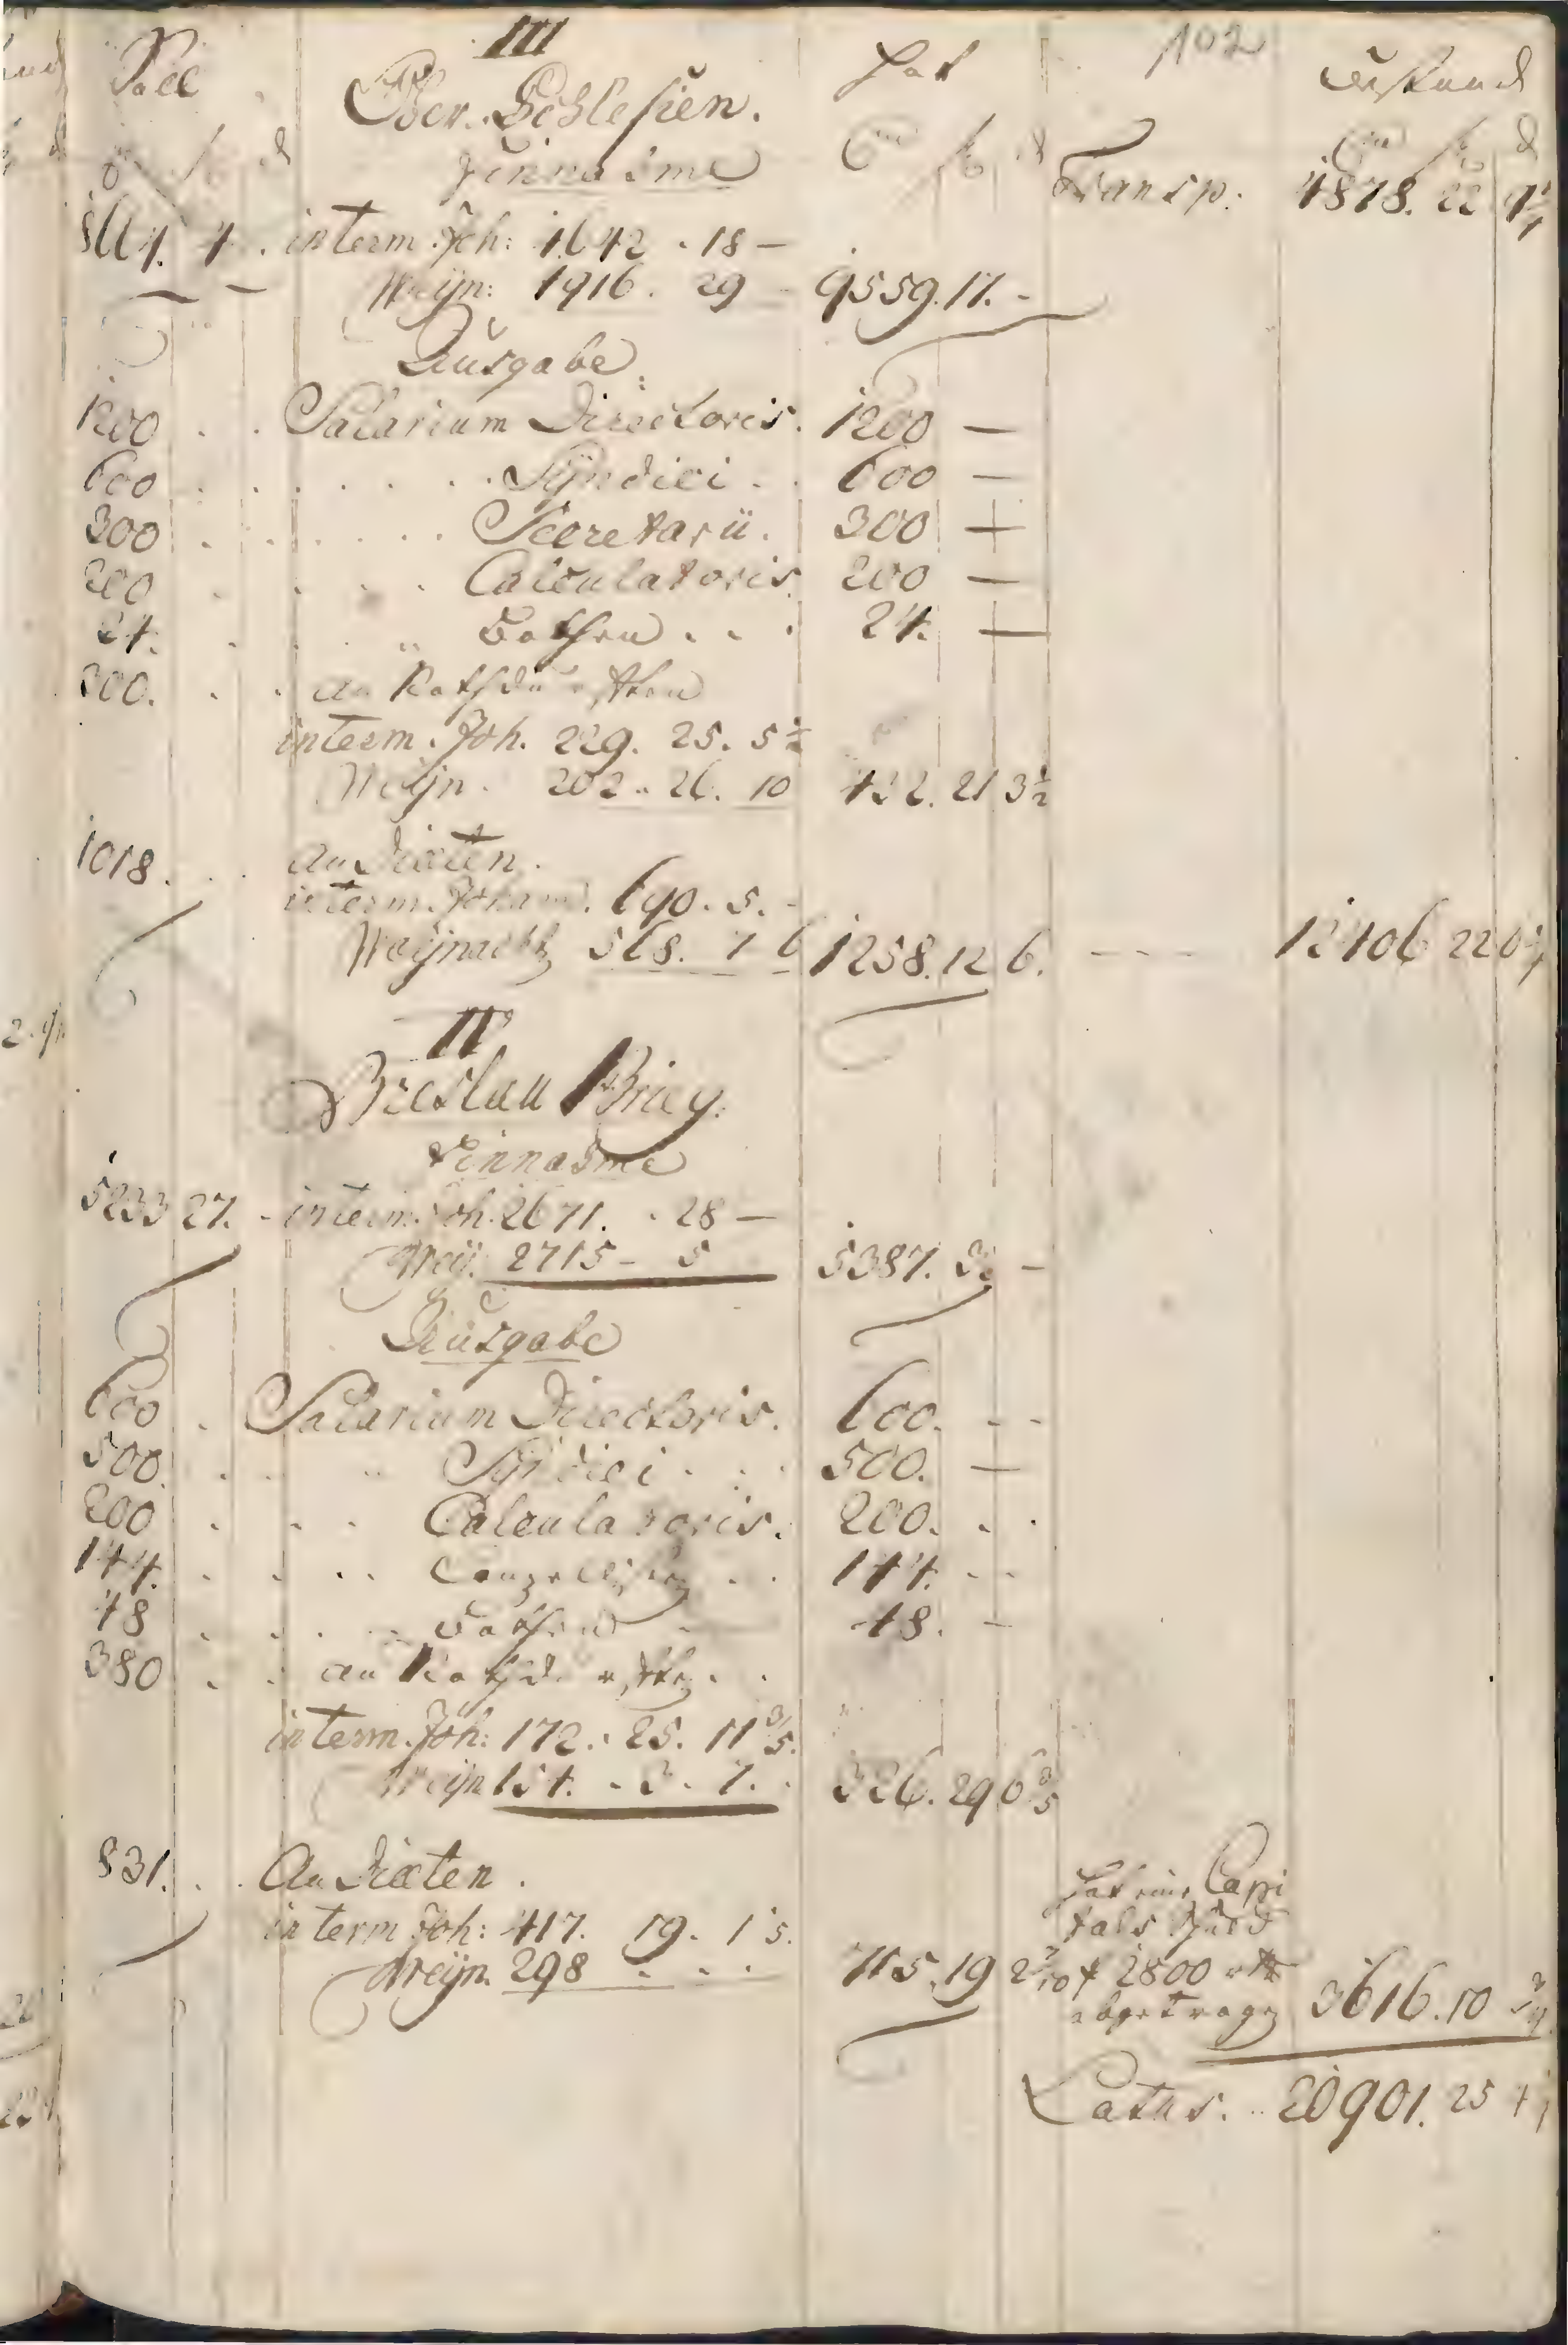 III 102
Soll Ober Schlesien. Hat Bestand
Einnahme Transp: 4878. 22 9¼
interm. Joh: 1642 . 18 —
Weÿn: 1916. 29 — 9559. 17. -
Ausgabe
1200 . . Salarium Directoris. 1200 —
600 . . . . . . Syndici . . 600 —
300 . . . . . . Secretarii. 300 —
200 . . . . Calculatoris. 200 —
24. . . " Bothen . . . 24. —
300. . . an Nothdurfften
interm. Joh. 229. 25. 5½
Weÿn. 202 . 26. 10 432. 21 3½
1018. . . an Diæten.
interm. Johann. 690. 5. -
Weÿnacht 568. 7 6 1258. 12 6. - - - - 12406 22
IV
Breslau Brieg.
Einnahme
5233 27. - interm. Joh. 2671. . 28 —
Weÿ. 2715 - 5 5387. 3 -
Ausgabe
600 . Salarium Directoris. 600. - -
500. . . " Syndici . . . 500. —
200 . . . Calculatoris. 200. . .
144. . . . . Canzellisten . . 144. - -
48 . . . . Bothen - 48. —
380 . . an Nothdurfften . .
interm. Joh: 172. . 25. 11⅗.
Weÿn 154. . 3 . 7. . 326. 29 6⅗
831. . . An Diæten .
interm Joh: 417. 19. 1
Weÿn. 298 - . . 715. 19 2 7/10
hat eine Capi
tals Schuld
2800 rth
abgetragen 3616. 10
Latus. .. 20901. 25